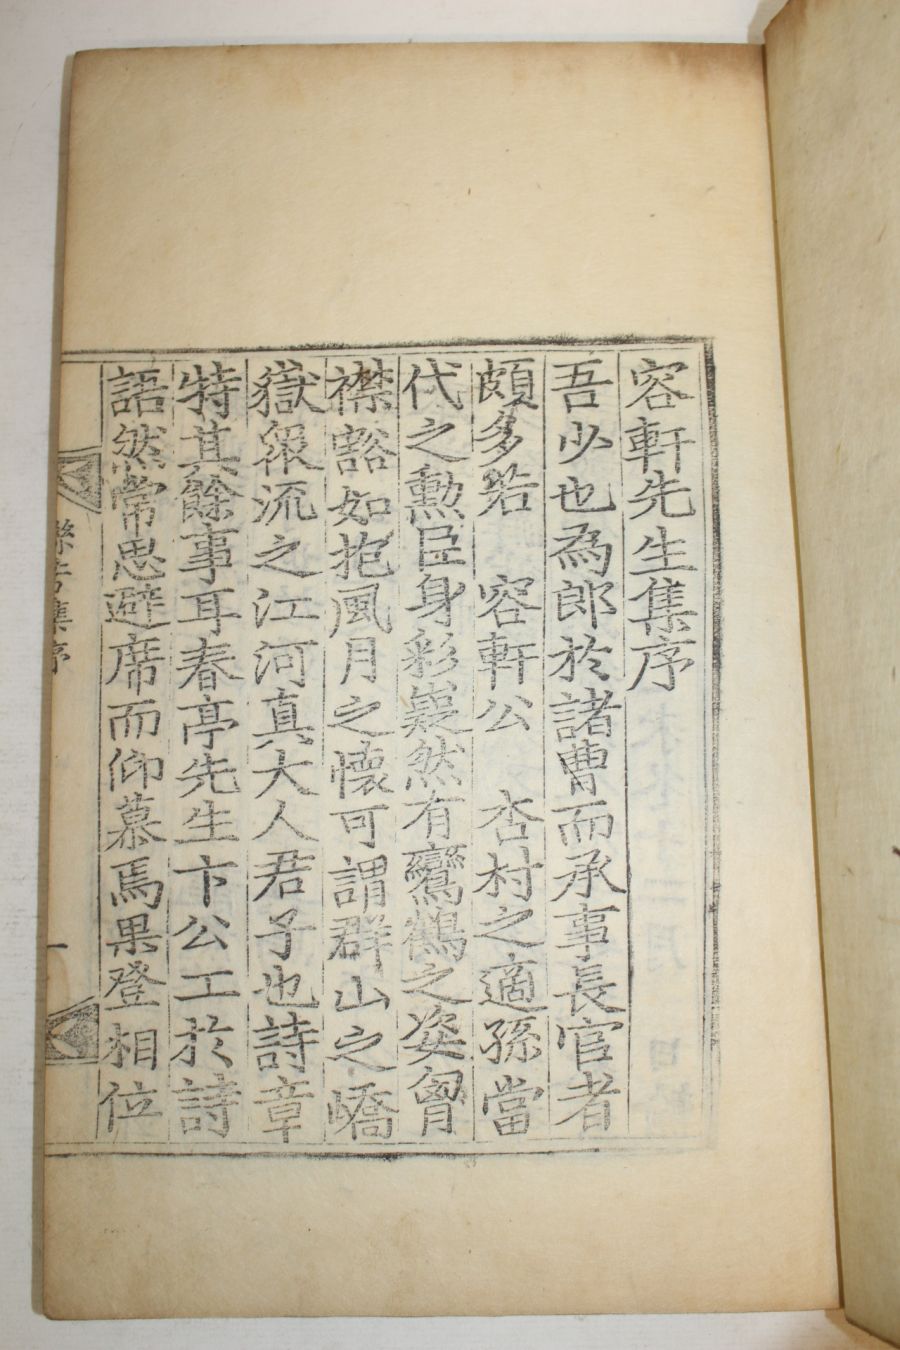 容軒先生集序
吾少也為郎於諸曹而承事長官者
頗多若 容軒公 杏村之適孫當
代之勲臣身彩嶷然有鸞鶴之姿胷
襟豁如抱風月之懷可謂群山之嶠
嶽衆流之江河真大人君子也詩章
特其餘事耳春亭先生卞公工於詩
語然常思避席而仰慕焉果登相位
集序
一